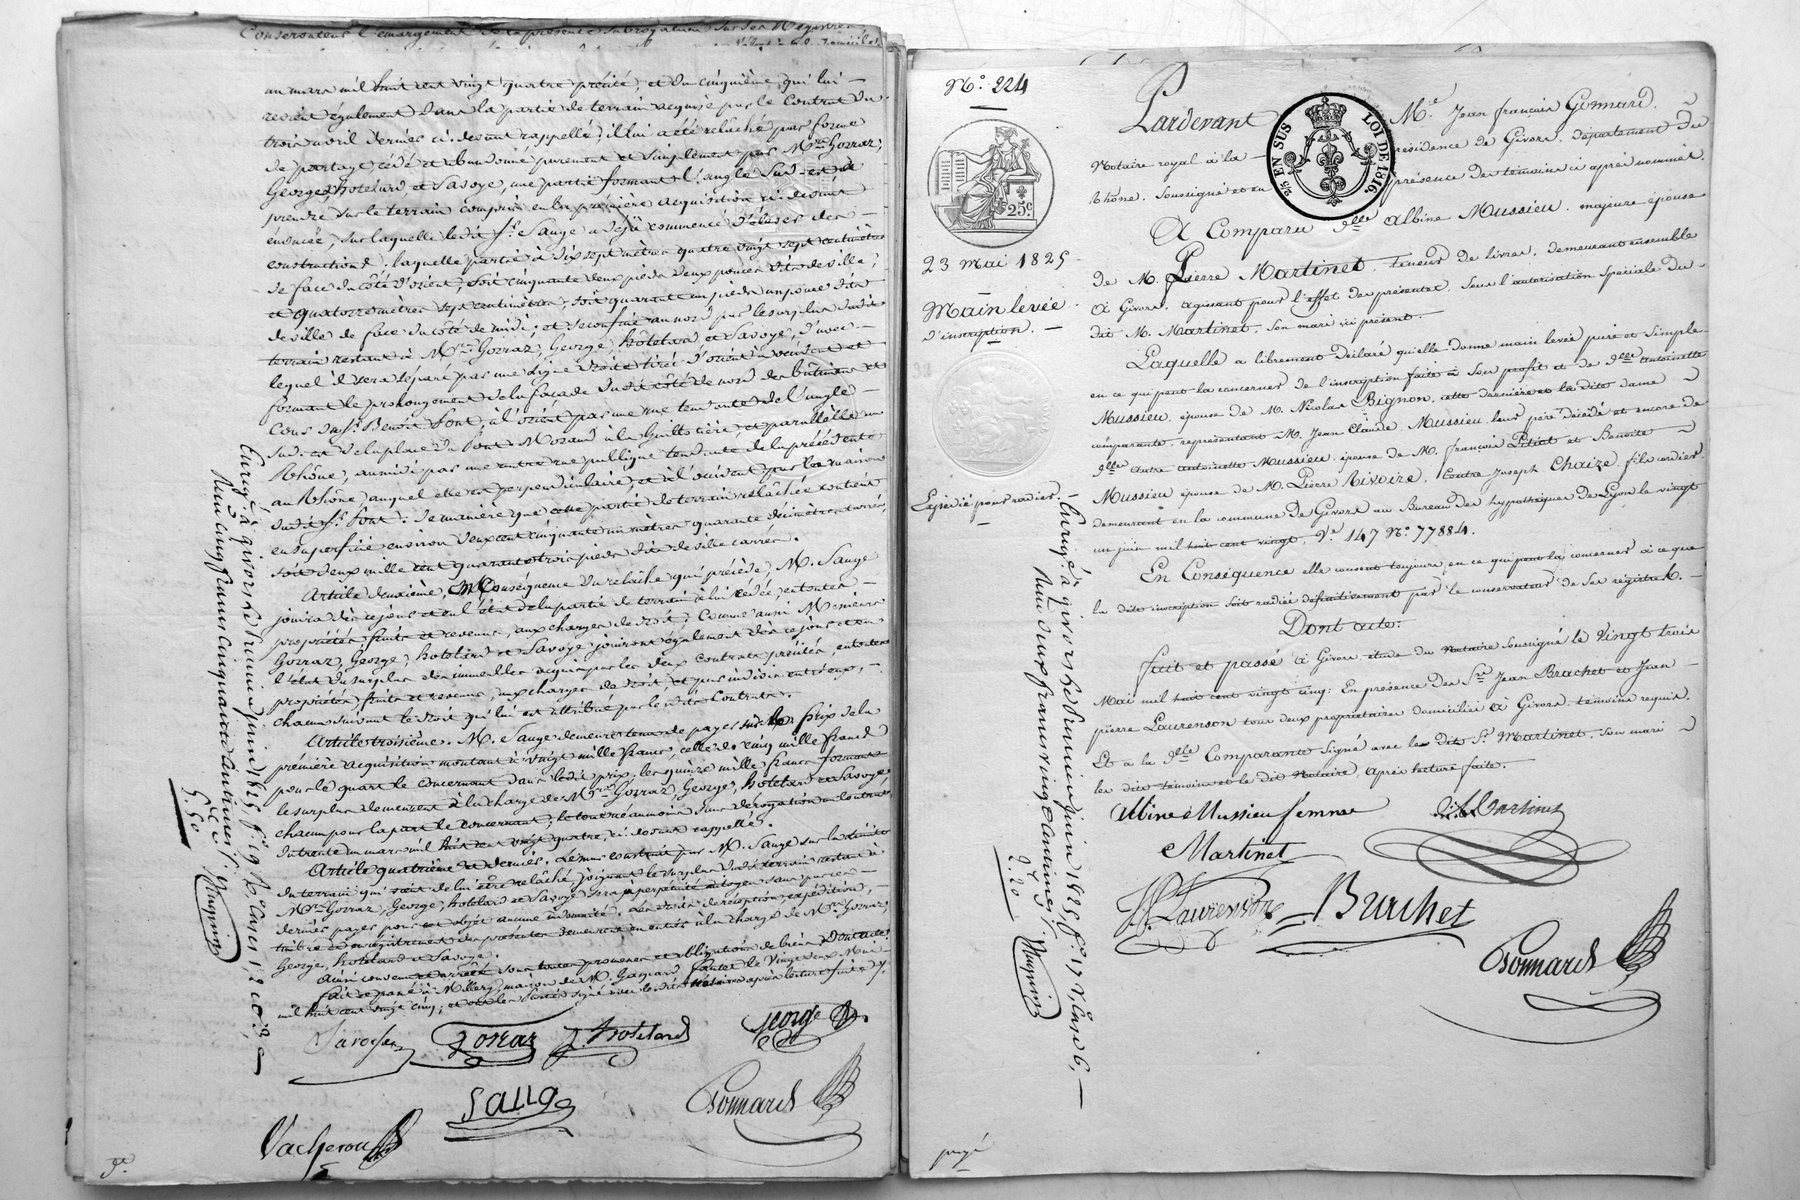 Conservateur l'emargement de la présente subrogation sur son Registre
un mars mil huit cent vingt quatre précité, et du cinquième qui lui
revient également dans la partie de terrain acquise par le Contrat du
trois avril dernier ci-devant rappellé, il lui a été relâché par forme
de partage, cédé et abandonné purement et simplement par Mrs Gorraz,
George, hotelard et Savoye, une partie formant l'angle Sud-est à
prendre sur le terrain compris en la première acquisition ci-devant
énoncée, sur laquelle ledit Sr Sauge a déjà commencé d'élever des
constructions : laquelle partie a dix sept mètres quatre vingt sept centimètres
de face du côté d'orient, soit cinquante deux pieds deux pouces dits de ville,
et quatorze mètres sept centimètres, soit quarante un pieds un pouce dits
de ville de face du côté de midi, et se confine au nord par le surplus dudit
terrain restant à Mrs Gorraz, George, hotelard et Savoye, d'avec
lequel il sera séparé par une ligne droite tirée d'orient à occident et
formant le prolongement de la façade du dit côté de nord des bâtimens et
Cour du Sr Benoit Font, à l'orient par une rue tendante de l'angle
Sud-est de la place du Pont Morand à la Guillotière et parallèle au
Rhône, au midi par une autre rue publique tendante de la précédente
au Rhône, auquel elle est perpendiculaire, et à l'occident par la maison
dudit Sr Font. De manière que cette partie de terrain relâchée contient
en superficie environ deux cent cinquante un mètres quarante décimètres carrés,
soit deux mille cent quarante trois pieds dits de ville carrés.
Article deuxième, En Conséquence du relâche qui précède, M. Sauge
jouira dès ce jour et en l'état de la partie de terrain à lui cédée, en toutes
propriétés, fruits et revenus, aux charges de droit ; Comme aussi Messieurs
Gorraz, George, hotelard et Savoye jouiront également dès ce jour et en
l'état du surplus des immeubles acquis par les deux contrats précités, en toutes
propriétés, fruits et revenus, aux charges de droit, et par indivis entre eux,
chacun suivant le droit qui lui est attribué par lesdits Contrats.
Article troisième. M. Sauge demeure tenu de payer sur le prix de la
première acquisition montant à vingt mille francs, celle de cinq mille francs
pour le quart le concernant dans ledit prix, les quinze mille francs formant
le surplus demeurent à la charge de Mrs Gorraz, George, hotelard et Savoye,
chacun pour la part le concernant, le tout néanmoins sans dérogation au contrat
du trente un mars mil huit cent vingt quatre, ci-devant rappellé.
Article quatrième et dernier. Le mur construit par M. Sauge sur la limite
du terrain qui vient de lui être relâché, joignant le surplus dudit terrain restant à
Mrs Gorraz, George, hotelard et Savoye sera à perpétuité mitoyen sans que ces
derniers payent pour cet objet aucune indemnité. Les droits de réception, expédition,
timbre et enregistrement des présentes demeurent en entier à la charge de Mrs Gorraz,
George, hotelard et Savoye.
Ainsi convenu et arrêté sous toutes promesses et obligations de biens. Dont acte
fait et passé à Millery, maison de M. Gaspard Gantet le Vingt deux Mai
mil huit cent vingt cinq, et ont les parties signé avec lesdits Notaires après lecture faite
Savoye
Gorraz
hotelard
George
Sauge
Bonnard
Vacheron
Enregé. à givors le premier juin 1825 fo 19
Reçu cinq francs cinquante centimes
5. 50
No. 224
2/5 EN SUS
LOI DE 1816.
25c
23 Mai 1825
Main levée
d'inscription.
Expédié pour radier.
Pardevant Me. Jean françois Gonnard,
Notaire royal à la résidence de Givors, département du
Rhône, Soussigné et en présence des témoins ci après nommés,
A Comparu Dlle Albine Mussieu, majeure épouse
de M. Pierre Martinet, teneur de livres, demeurant ensemble
à Givors, agissant pour l'effet des présentes, Sous l'autorisation Spéciale du
dit M. Martinet, Son mari ici présent.
Laquelle a librement déclaré qu'elle donne main levée pure et simple
en ce qui peut la concerner de l'inscription faite à Son profit et de Dlle Antoinette
Mussieu, épouse de M. Nicolas Bignon, cette dernière et la dite dame
comparante, représentant M. Jean Claude Mussieu leur père décédé et encore de
Dlle autre Antoinette Mussieu, épouse de M. françois Pitiot et Benoite
Mussieu épouse de M. Pierre Rivoire, Contre Joseph Chaize, fils cordier
demeurant en la commune de Givors au Bureau des hypothèques de Lyon le vingt
un juin mil huit cent vingt, Ve 147 No. 77884.
En Conséquence elle consent toujours, en ce qui peut la concerner à ce que
la dite inscription soit radiée définitivement par le conservateur de Ses registres.
Dont acte.
fait et passé à Givors, étude du Notaire Soussigné le Vingt trois
Mai mil huit cent vingt cinq : En présence des Srs Jean Brachet et Jean
pierre Laurenson tous deux propriétaires domiciliés à Givors, témoins requis,
Et a la Dlle Comparante Signé avec le dit Sr Martinet, Son mari
les dits témoins et le dit Notaire, après lecture faite.
Albine Mussieu femme
Martinet
Martinet
Laurenson
Brachet
Gonnard
Enregé. à givors le premier juin 1825, fo 17 Vo, Case 6,
Reçu deux francs vingt centimes
2. 20